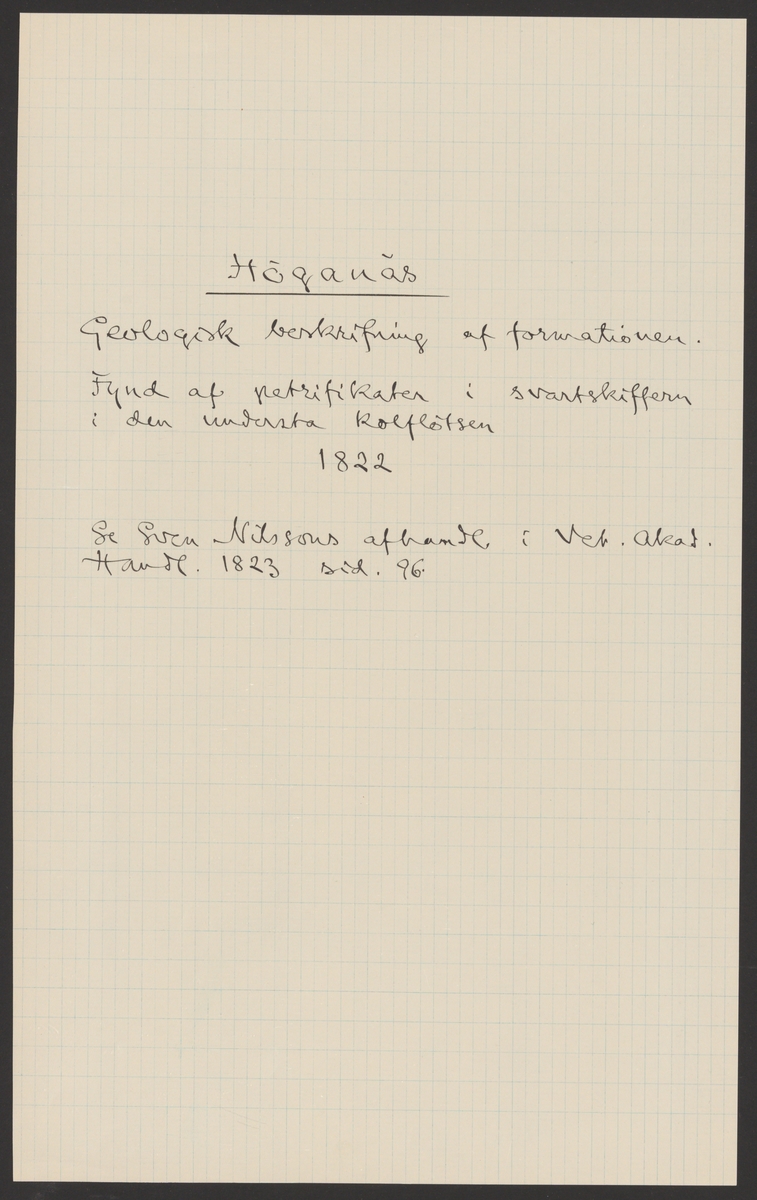 Höganäs
Geologisk beskrifning af formationen.
Fynd af petrifikater i svartskiffern
i den understa kolflötsen
1822
Se Sven Nilssons afhandl. i Vet. Akad.
Handl. 1823 sid. 96.